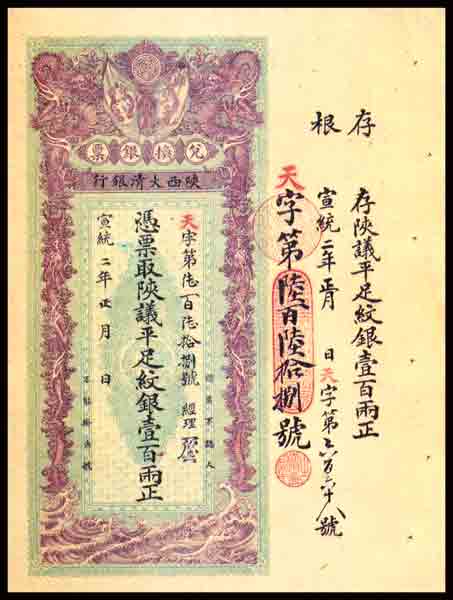 存根
存陝議平足紋銀壹百兩正
宣統二年正月 日 天字第六百六十八號
天字第陸百陸拾捌號
兌換銀票
陝西大清銀行
認票不認人
天字第陸百陸拾捌號 經理
憑票取陝議平足紋銀壹百兩正
宣統二年正月 日